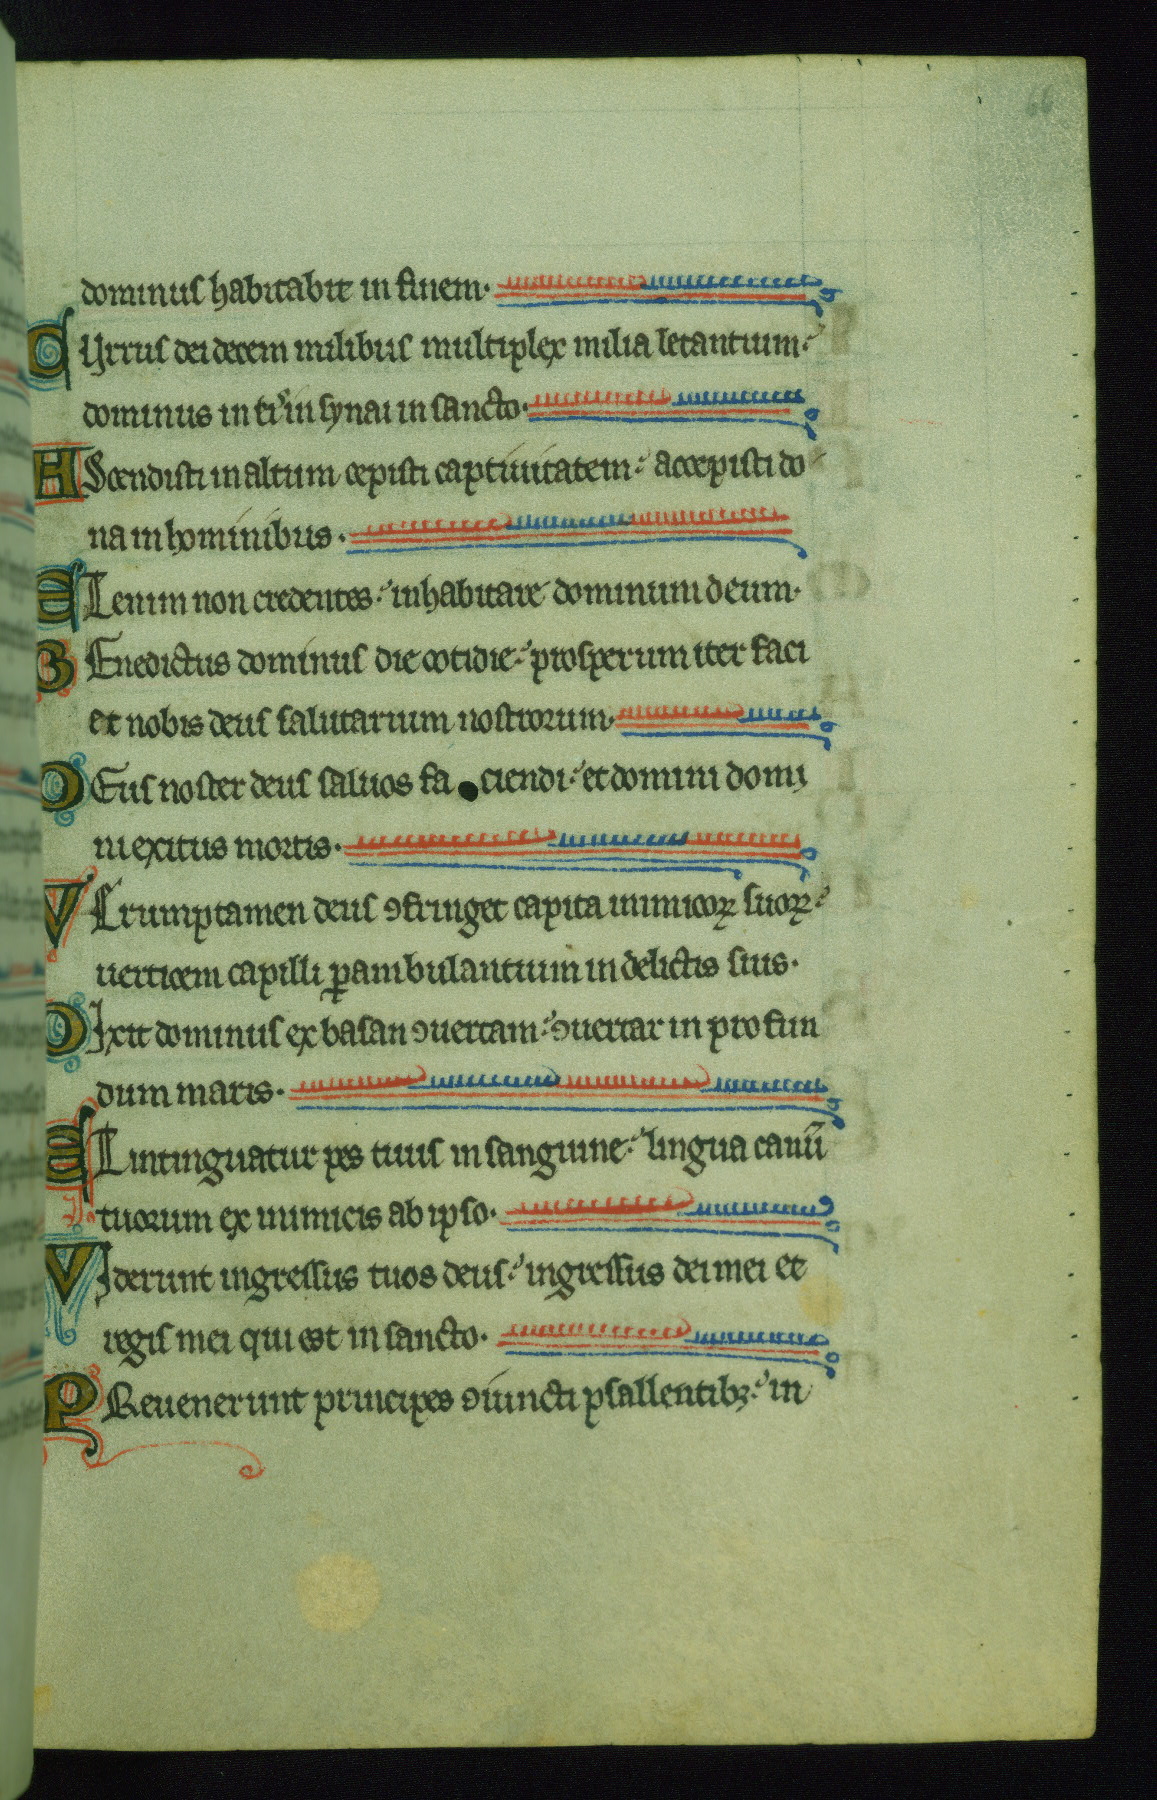 66
dominus habitabit in finem.
CYrrus dei decem milibus multiplex milia letantium:
dominus in ei' in synai in sancto.
AScendisti in altum cepisti captiuitatem: accepisti do
na in hominibus.
ETenim non credentes: inhabitare dominum deum.
BEnedictus dominus die cotidie: prosperum iter faci
et nobis deus salutarium nostrorum.
DEus noster deus saluos fa ciendi: et domini domi
ni exitus mortis.
VErumptamen deus ꝯfringet capita inimicoꝝ suoꝝ:
uerticem capilli ꝑambulantium in delictis suis.
DIxit dominus ex basan ꝯuertam: ꝯuertar in profun
dum maris.
ET intinguatur pes tuus in sanguine: lingua canū
tuorum ex inimicis ab ipso.
VIderunt ingressus tuos deus: ingressus dei mei et
regis mei qui est in sancto.
PReuenerunt principes ꝯiuncti psallentibꝫ: in